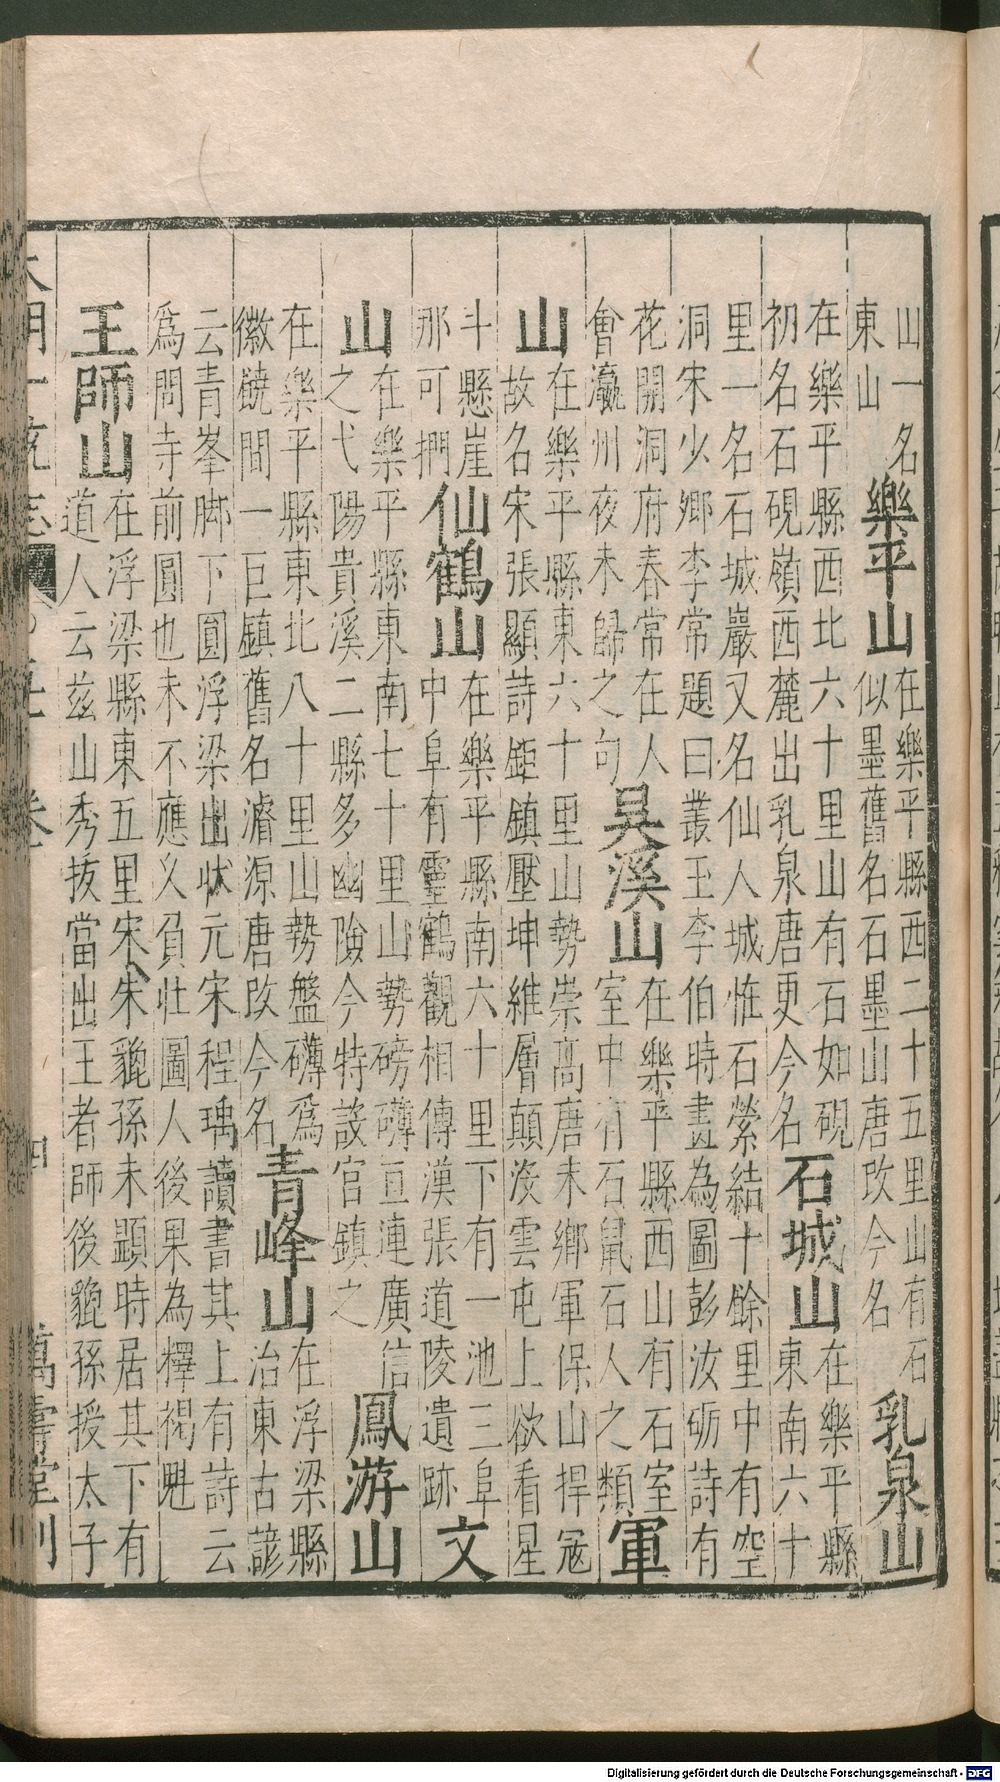 山一名東山樂平山在樂平縣西二十五里山有石似墨舊名石墨山唐改今名乳泉山
在樂平縣西北六十里山有石如硯初名石硯嶺西麓出乳泉唐更今名石城山在樂平縣東南六十
里一名石城巖又名仙人城怪石縈結十餘里中有空洞宋少卿李常題曰叢玉李伯時畫為圖彭汝砺詩有
花開洞府春常在人會瀛州夜未歸之句吳溪山在樂平縣西山有石室室中有石鼠石人之類軍
山在樂平縣東六十里山勢崇高唐末鄉軍保山捍冦故名宋張顯詩鉅鎮壓坤維層顛沒雲屯上欲看星
斗懸崖那可捫仙鶴山在樂平縣南六十里下有一池三阜中阜有靈鶴觀相傳漢張道陵遺跡文
山在樂平縣東南七十里山勢磅礡亘連廣信之弋陽貴溪二縣多幽險今特設官鎮之鳳游山
在樂平縣東北八十里山勢盤礡爲徽饒間一巨鎮舊名濬源唐改今名青峰山在浮梁縣治東古諺
云青峯脚下圓浮梁出狀元宋程瑀讀書其上有詩云爲問寺前圓也未不應久負壯圖人後果為釋褐魁
王師山在浮梁縣東五里宋朱貔孫未顯時居其下有道人云茲山秀拔當出王者師後貔孫授太子
大明一統志 卷 四 萬壽堂刊
Digitalisierung gefördert durch die Deutsche Forschungsgemeinschaft - DFG